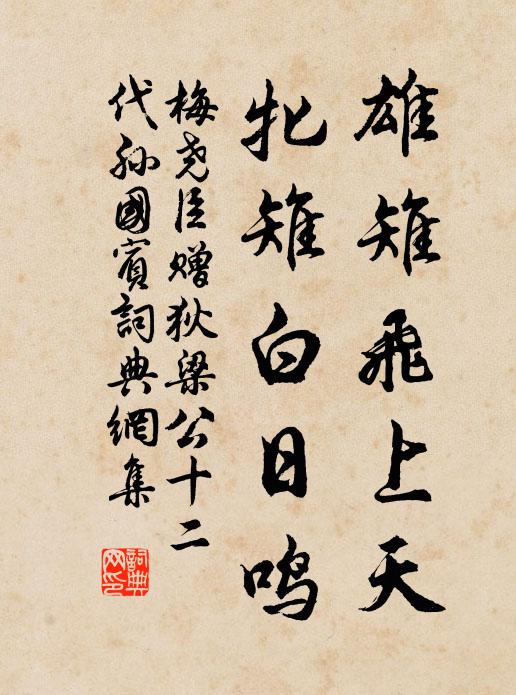 雄雉飛上天
牝雉白日鸣
梅尧臣赠狄梁公十二
代孙國賓詞典網集
詞典
网印